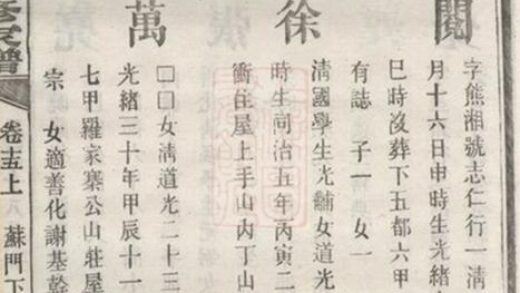 閱
字熊湘號志仁行一淸
月十六日申時生光緒
巳時沒葬下五都六甲
有誌 子一 女一
徐
淸國學生光黼女道光
時生同治五年丙寅二
衝住屋上手山內丁山
萬
□□女淸道光二十三
光緒三十年甲辰十一
七甲羅家寨公山莊屋
宗 女適善化謝基幹
修家譜
卷十五上 八 蘇門下